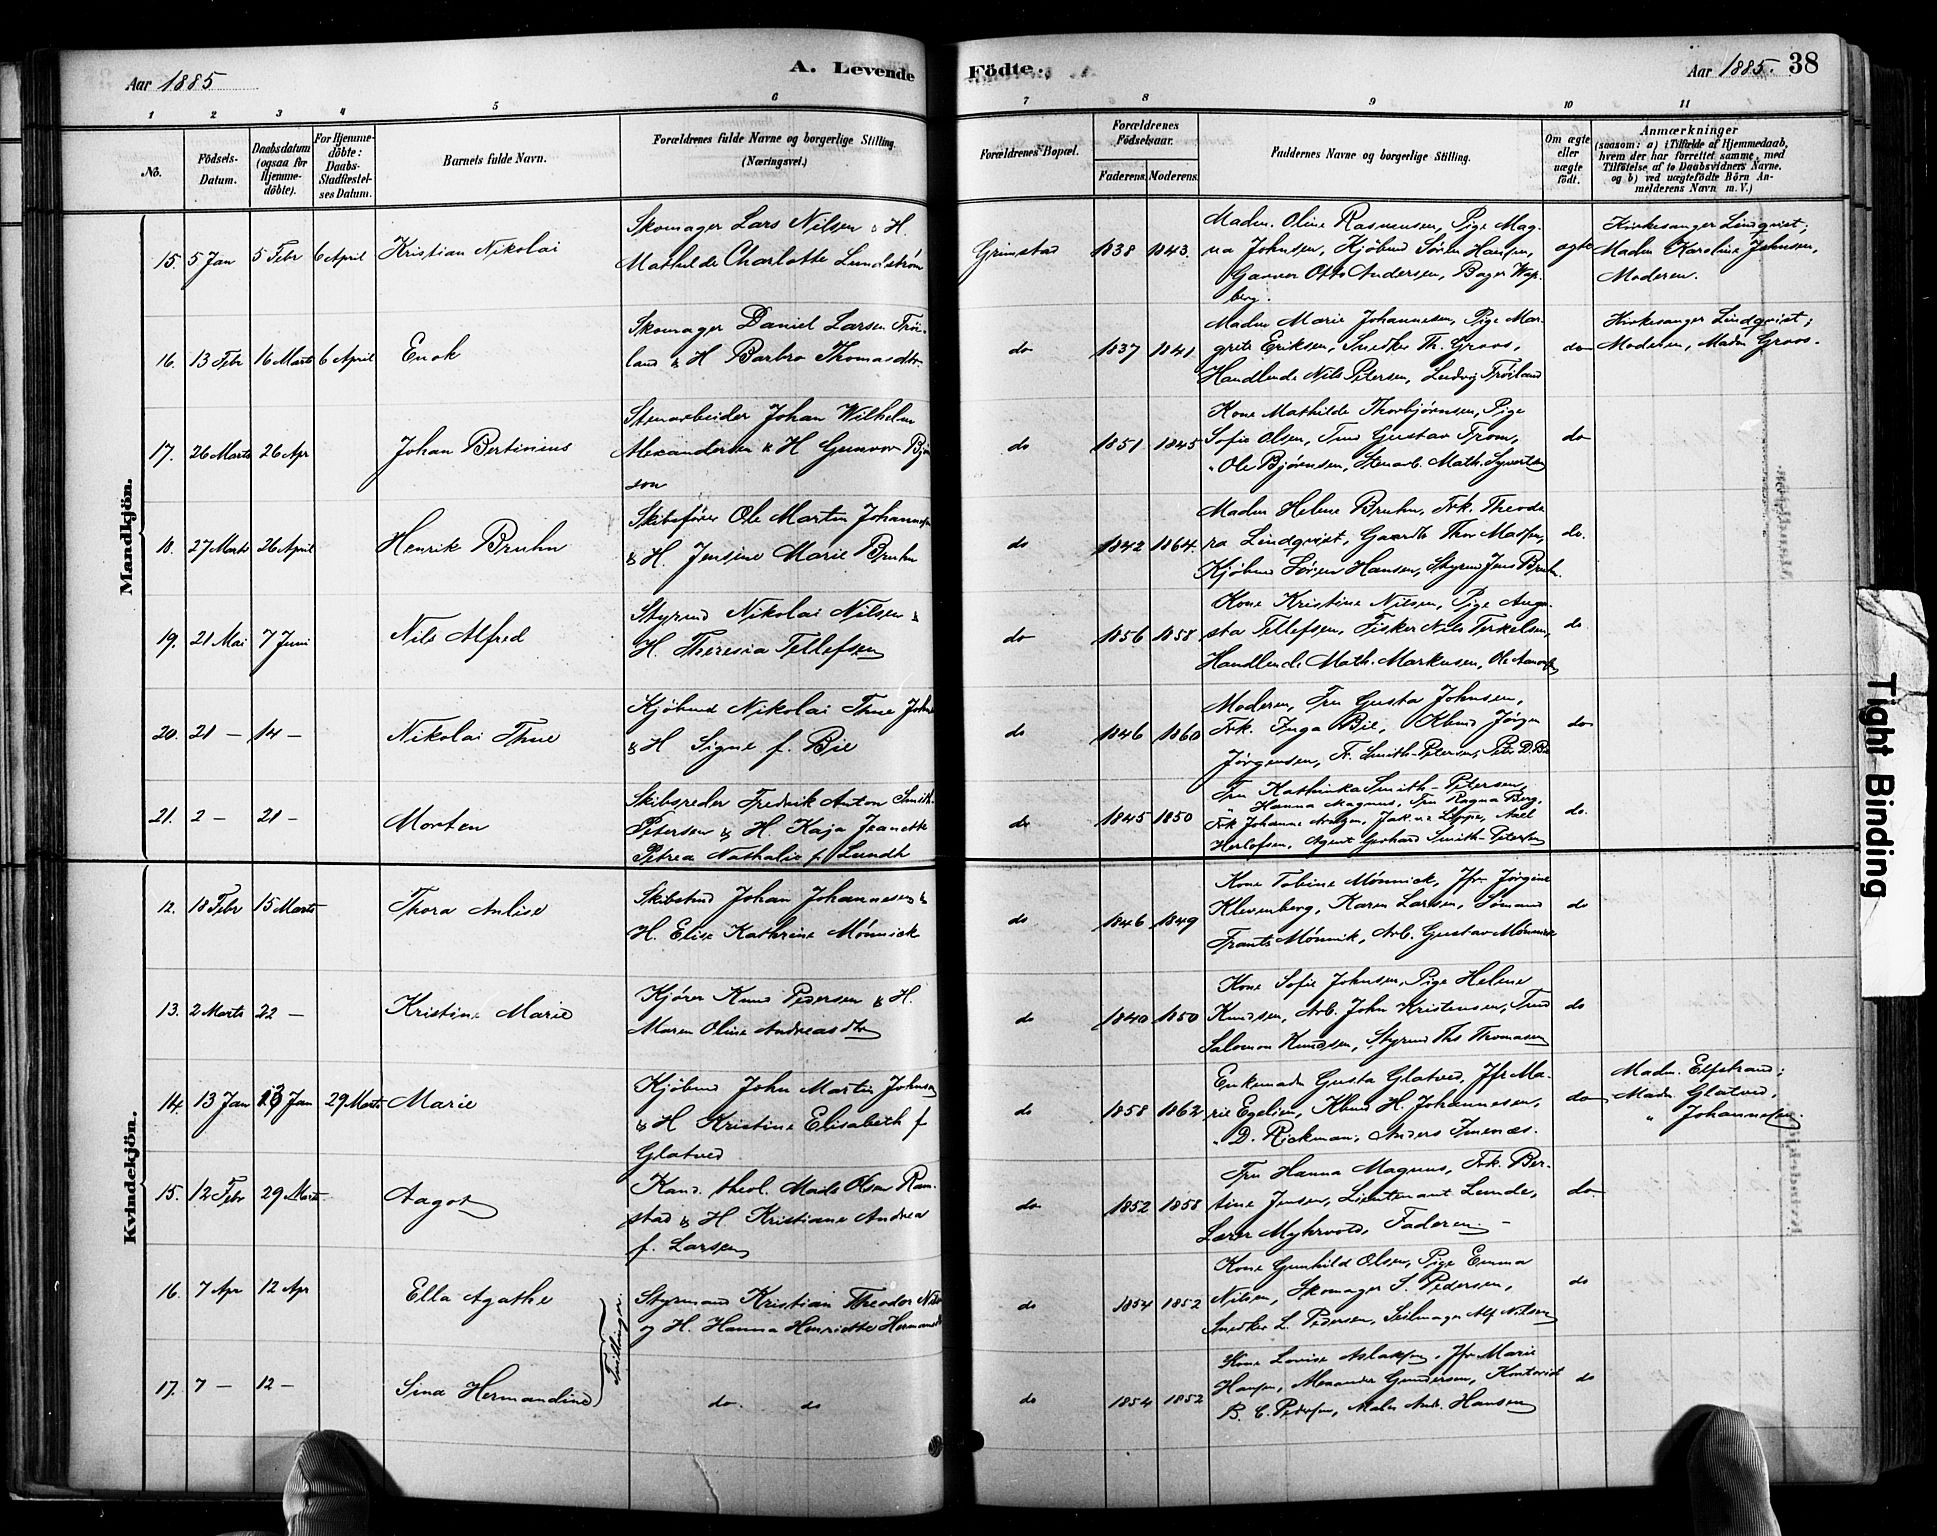 Aar 1885
A. Levende
Födte.
Aar 1885. 38
1 2 3 4 5 6 7 8 9 10 11
No.
Födsels-
Datum.
Daabsdatum
(ogsaa for
Hjemme-
döbte).
For Hjemme-
döbte:
Daabs-
Stadfæstel-
ses Datum.
Barnets fulde Navn.
Forældrenes fulde Navne og borgerlige Stilling.
(Næringsvei.)
Forældrenes Bopæl.
Forældrenes
Födselsaar.
Faderens. Moderens.
Faddernes Navne og borgerlige Stilling.
Om ægte
eller
uægte
født.
Anmærkninger
(saasom: a) i Tilfælde af Hjemmedaab,
hvem der har forrettet samme, med
Tilföielse af to Daabsvidners Navne,
og b) ved uægtefödte Börn An-
melderens Navn m. V.)
Mandkjön.
15. 5 Jan 5 Febr 6 April Kristian Nikolai
Skomager Lars Nilsen & H.
Mathilde Charlotte Lundstrøm
Grimstad 1838 1843.
Madm. Oline Rasmussen, Pige Mag-
na Johnsen, Kjøbmd Søren Hansen,
Garver Otto Andersen, Bager Wap-
berg.
ægte
Kirkesanger Lindqvist;
Madm Karoline Johnsen,
Moderen.
16. 13 Febr 16 Marts 6 April Enok
Skomager Daniel Larsen Trøi-
land & H Barbro Thomasdtr.
do 1837 1841
Madm Marie Johannesen, Pige Mar-
grete Eriksen, Snedker Th. Groos,
Handlende Nils Petersen, Ludvig Trøiland
do
Kirkesanger Lindqvist;
Moderen, Madm Groos.
17. 26 Marts 26 Apr Johan Bertinius
Stenarbeider Johan Wilhelm
Alexandersen & H Gunvor Bjøn
son
do 1851 1845
Kone Mathilde Thorbjørnsen, Pige
Sofie Olsen, Tmd Gustav From,
" Ole Bjørnsen, Stenarb. Math. Syvertsen
do
18. 27 Marts 26 April Henrik Bruhn
Skibsfører Ole Martin Johannesen
& H. Jensine Marie Bruhn
do 1842 1864.
Madm Helene Bruhn, Frk. Theodo
ra Lindqvist, Gaardbr Thor Madsen,
Kjøbmd Søren Hansen, Styrmd Jens Bruhn.
do.
19. 21 Mai 7 Juni Nils Alfred
Styrmd Nikolai Nilsen &
H. Theresia Tellefsen
do 1856 1858
Kone Kristine Nilsen, Pige Augu-
sta Tellefsen, Fisker Nils Terkelsen,
Handlende Math. Markusen, Ole
do
20. 21 — 14 — Nikolai Thue
Kjøbmd Nikolai Thue John
& H Signe f. Bie
do 1846 1860
Moderen, Fru Gusta Johnsen,
Frk. Inga Bie, Kbmd Jørgen
Jørgensen, Fr. Smith-Petersen, Peter D. Bie
do
21. 2 — 21 — Morten
Skibsreder Fredrik Anton Smith-
Petersen & H. Kaja Jeanette
Petrea Nathalie f. Lundh
do 1845 1850
Fru Kathinka Smith-Petersen,
" Hanna Magnus, Fru Ragna Berg,
Frk Johanne Axel
Herlofsen, Agent Gerhard Smith-Petersen
do.
Kvindekjön.
12. 18 Febr 15 Marts Thora Anlise
Skibstmd Johan Johannesen &
H. Elise Kathrine Mønnick
do 1846 1849
Kone Tobine Mønnick, Jfr Jørgine
Klevenberg, Karen Larsen, Sømand
Frants Mønnik, Arb. Gustav Mønnick
do
13. 2 Marts 22 — Kristine Marie
Kjører Knud Pedersen & H.
Maren Oline Andreasdtr
do 1840 1850
Kone Sofie Johnsen, Pige Helene
Knudsen, Arb. John Kristensen, Tmd
Salomon Knudsen, Styrmd Ths Thomasen
do
14. 13 Jan 13 Jan 29 Marts Marie
Kjøbmd John Martin Johnsen
& H Kristine Elisabeth f
Glatved
do 1858 1862
Enkemadm Gusta Glatved, Jfr Ma-
rie Egelien, Kbmd H. Johannesen,
" D. Rickman, Anders Imenæs.
do
Madm. Elfstrand;
Madm. Glatved,
" Johannesen.
15. 12 Febr 29 Marts Aagot
Kand. theol. Mads Olsen Ram-
stad & H Kristiane Andrea
f. Larsen
do. 1852 1858
Fru Hanna Magnus, Frk. Ber-
tine Jensen, Lieutenant Lunde,
Lærer Myhrvold, Faderen. —
do
16. 7 Apr 12 Apr Ella Agathe
Tvillinger.
Styrmand Kristian Theodor Nils
og H. Hanna Henriette Hermansd
do 1854 1852
Kone Gunhild Olsen, Pige Emma
Nilsen, Skomager S. Pedersen,
Snedker L. Pedersen, Seilmager Alf Nilsen
do
17. 7 — 12 — Sina Hermandine
do. do
do 1854 1852
Kone Lovise Aslaksen, Jfr Marie
Hansen, Alexander Gundersen, Kontorist
B. C. Pedersen, Maler Andr. Hansen
do
Tight Binding